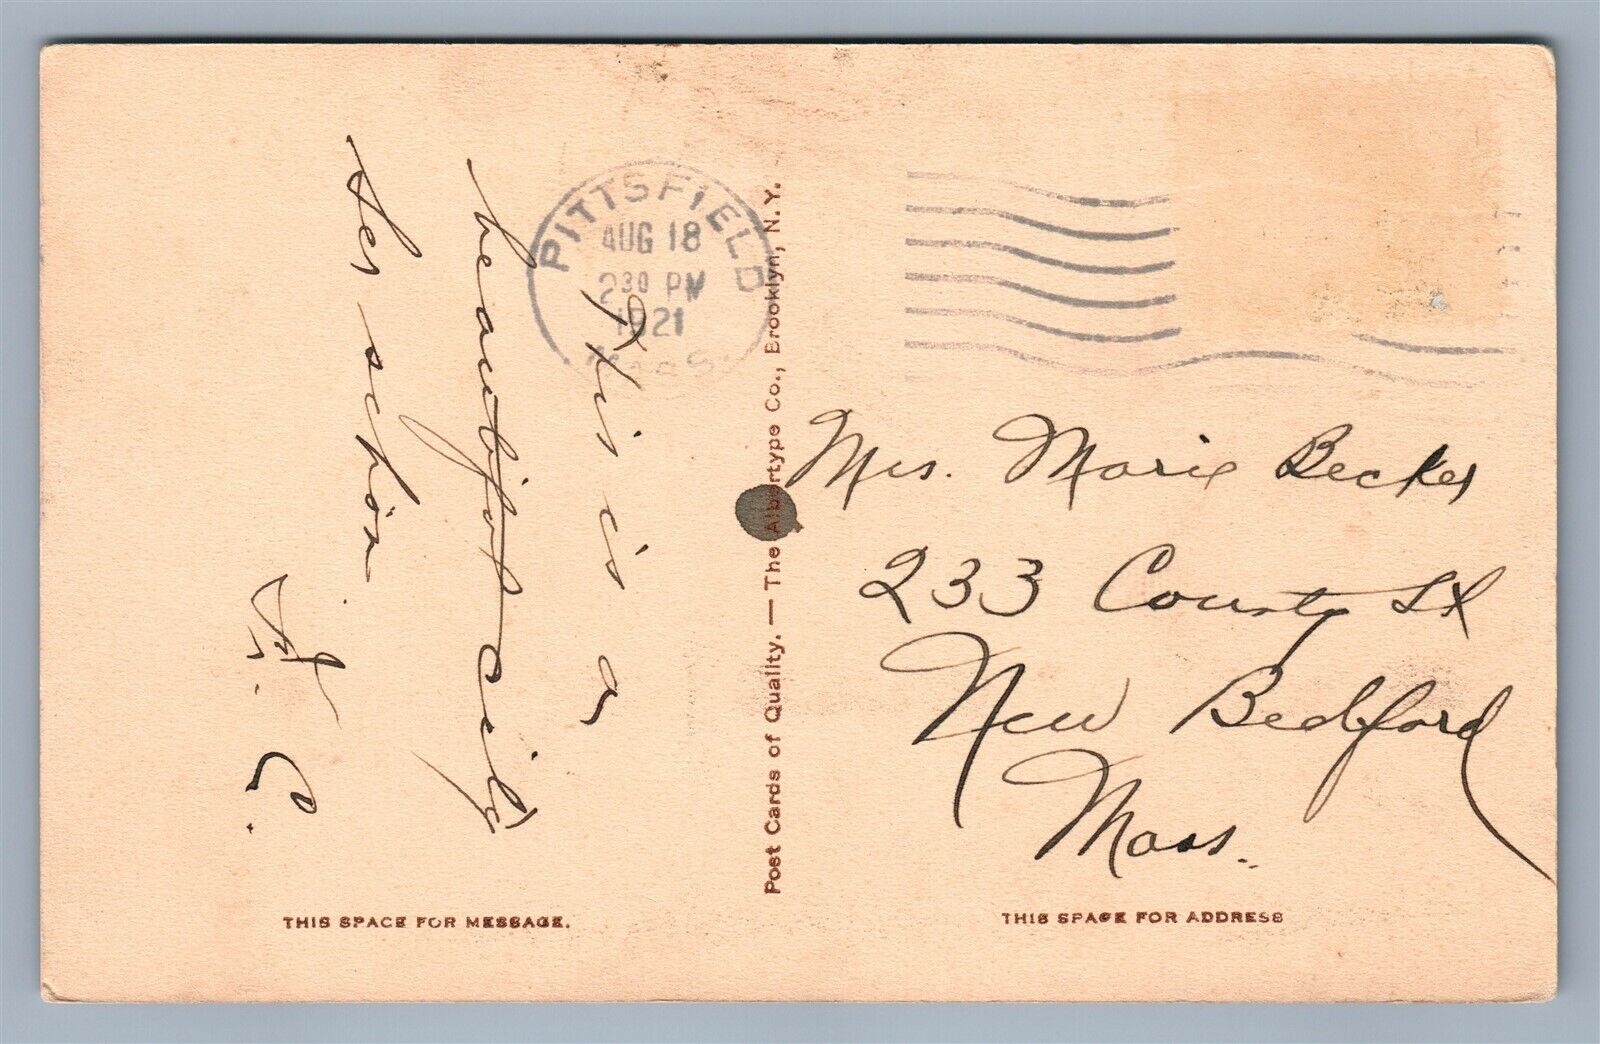 This is a
beautiful city
Ser schön
F. C.
PITTSFIELD
AUG 18
2 30 PM
1921
MASS
Post Cards of Quality. — The Albertype Co., Brooklyn, N.Y.
Mrs. Marie Becker
233 County St
New Bedford
Mass.
THIS SPACE FOR MESSAGE.
THIS SPACE FOR ADDRESS